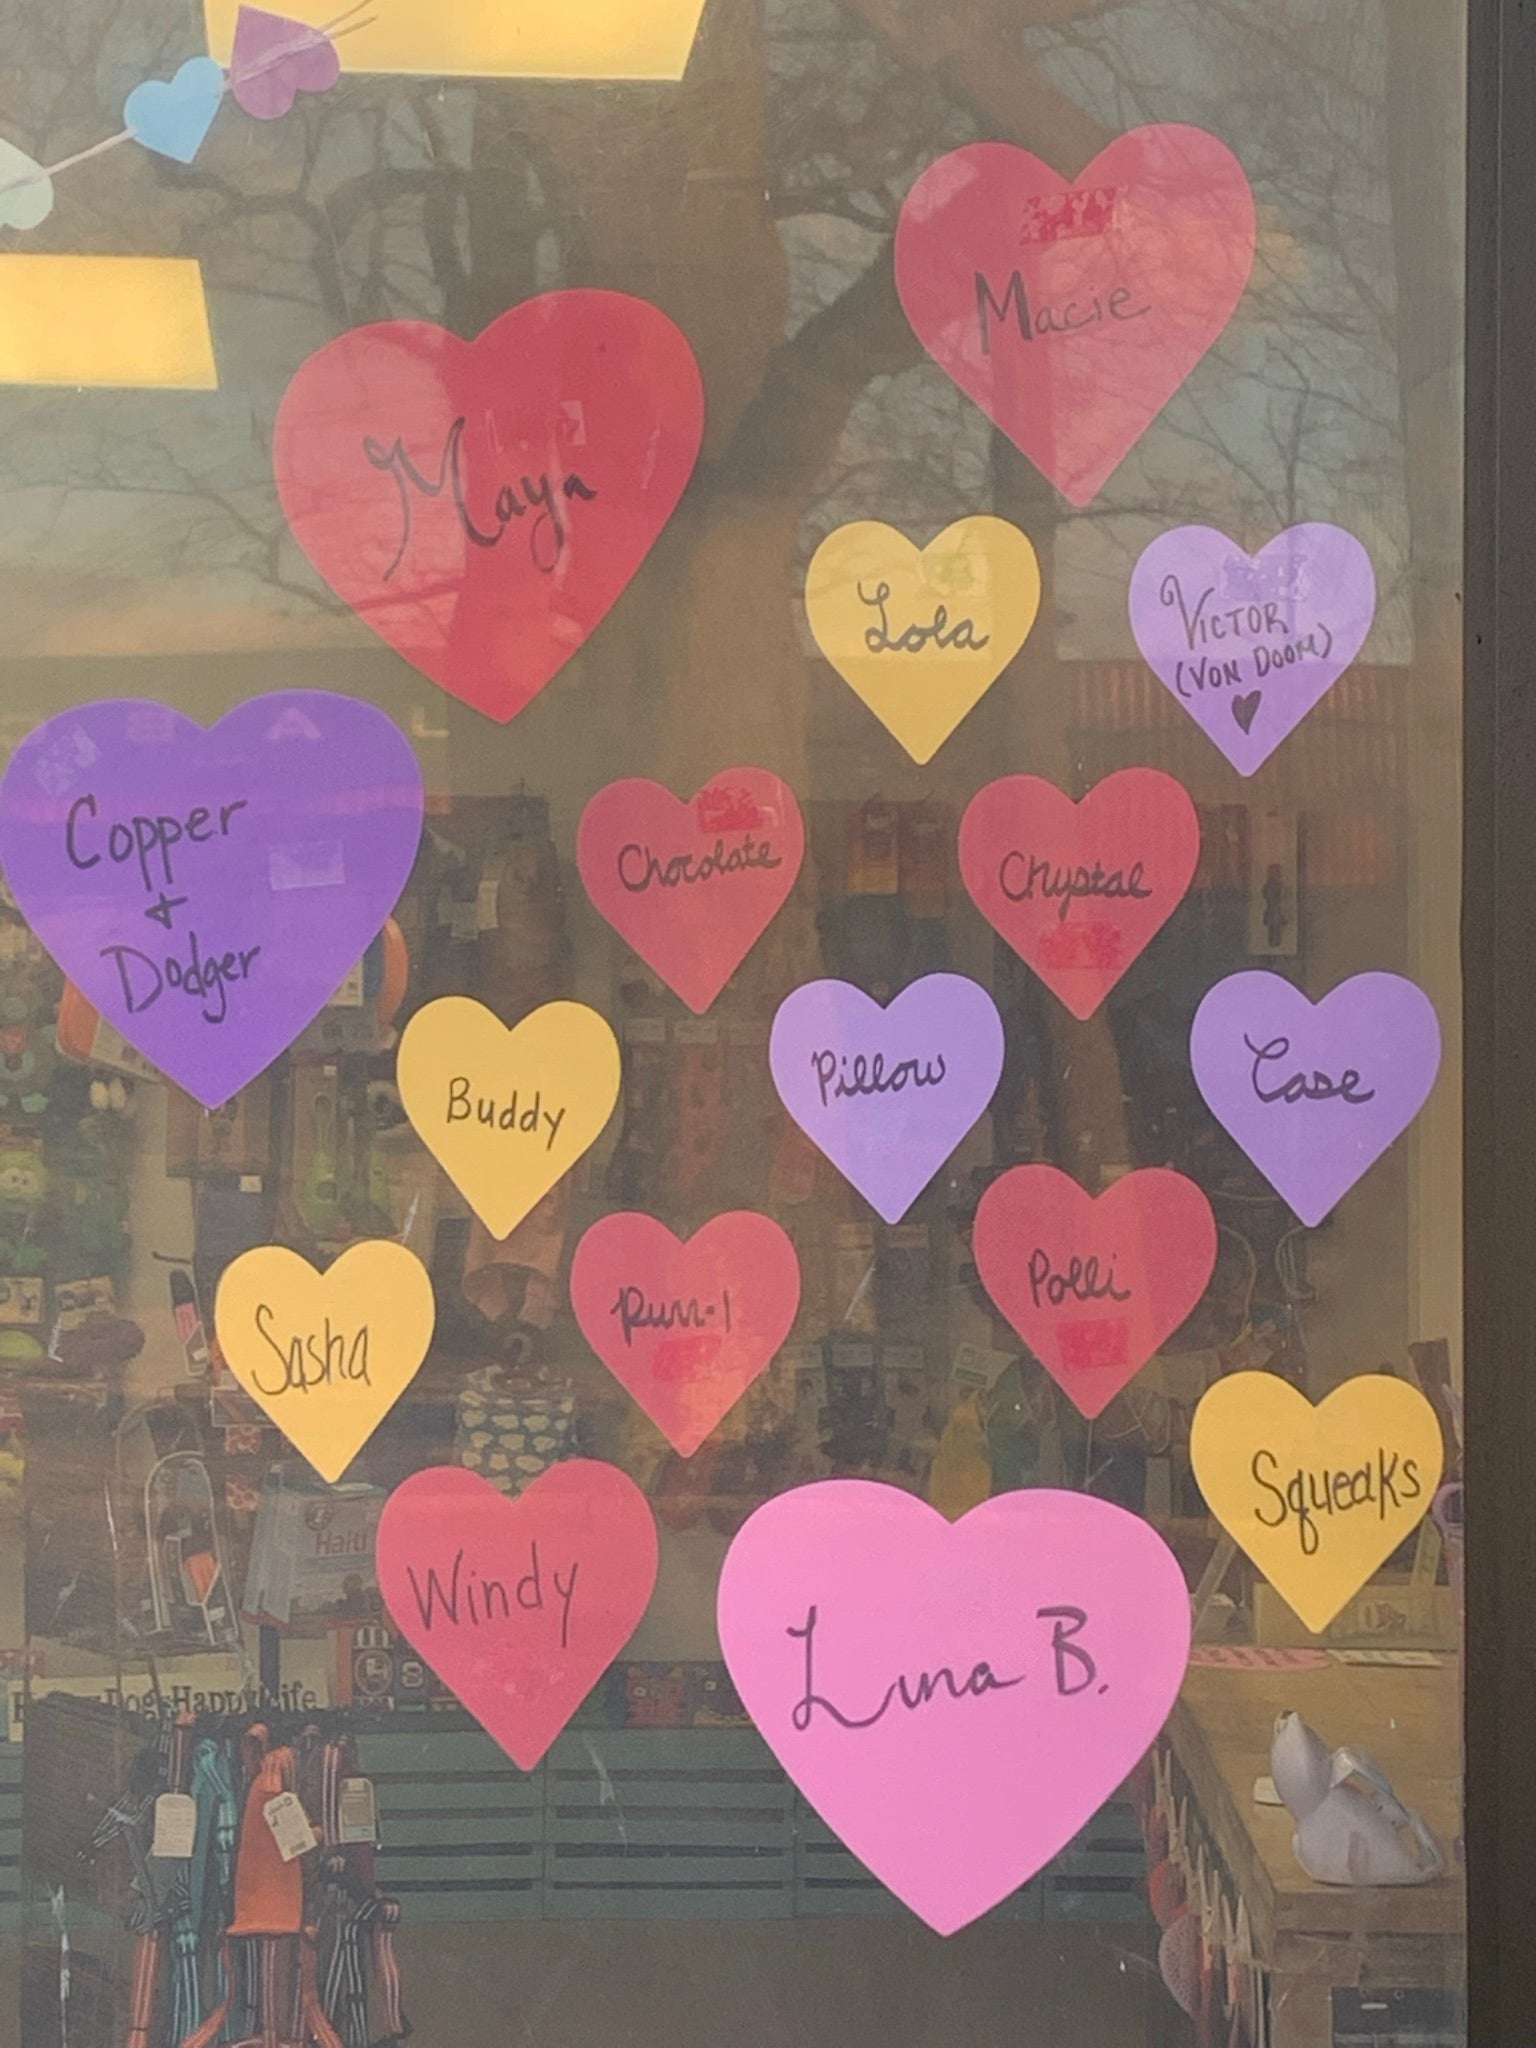 Macie
Maya
Lola
VICTOR
(VON DOOM)
Copper
+
Dodger
Chocolate
Chrystal
Buddy
Pillow
Case
Sasha
Purr-1
Polli
Squeaks
Windy
Luna B.
Haiti
Dogs Happy Life